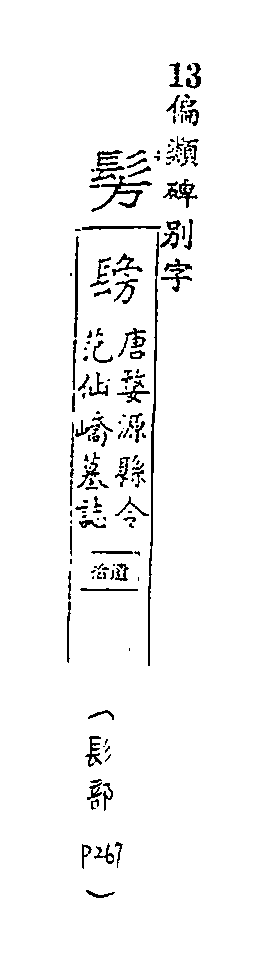 13偏類碑別字
髣
唐婺源縣令
范仙嶠墓誌
拾遺
(髟部 P267)